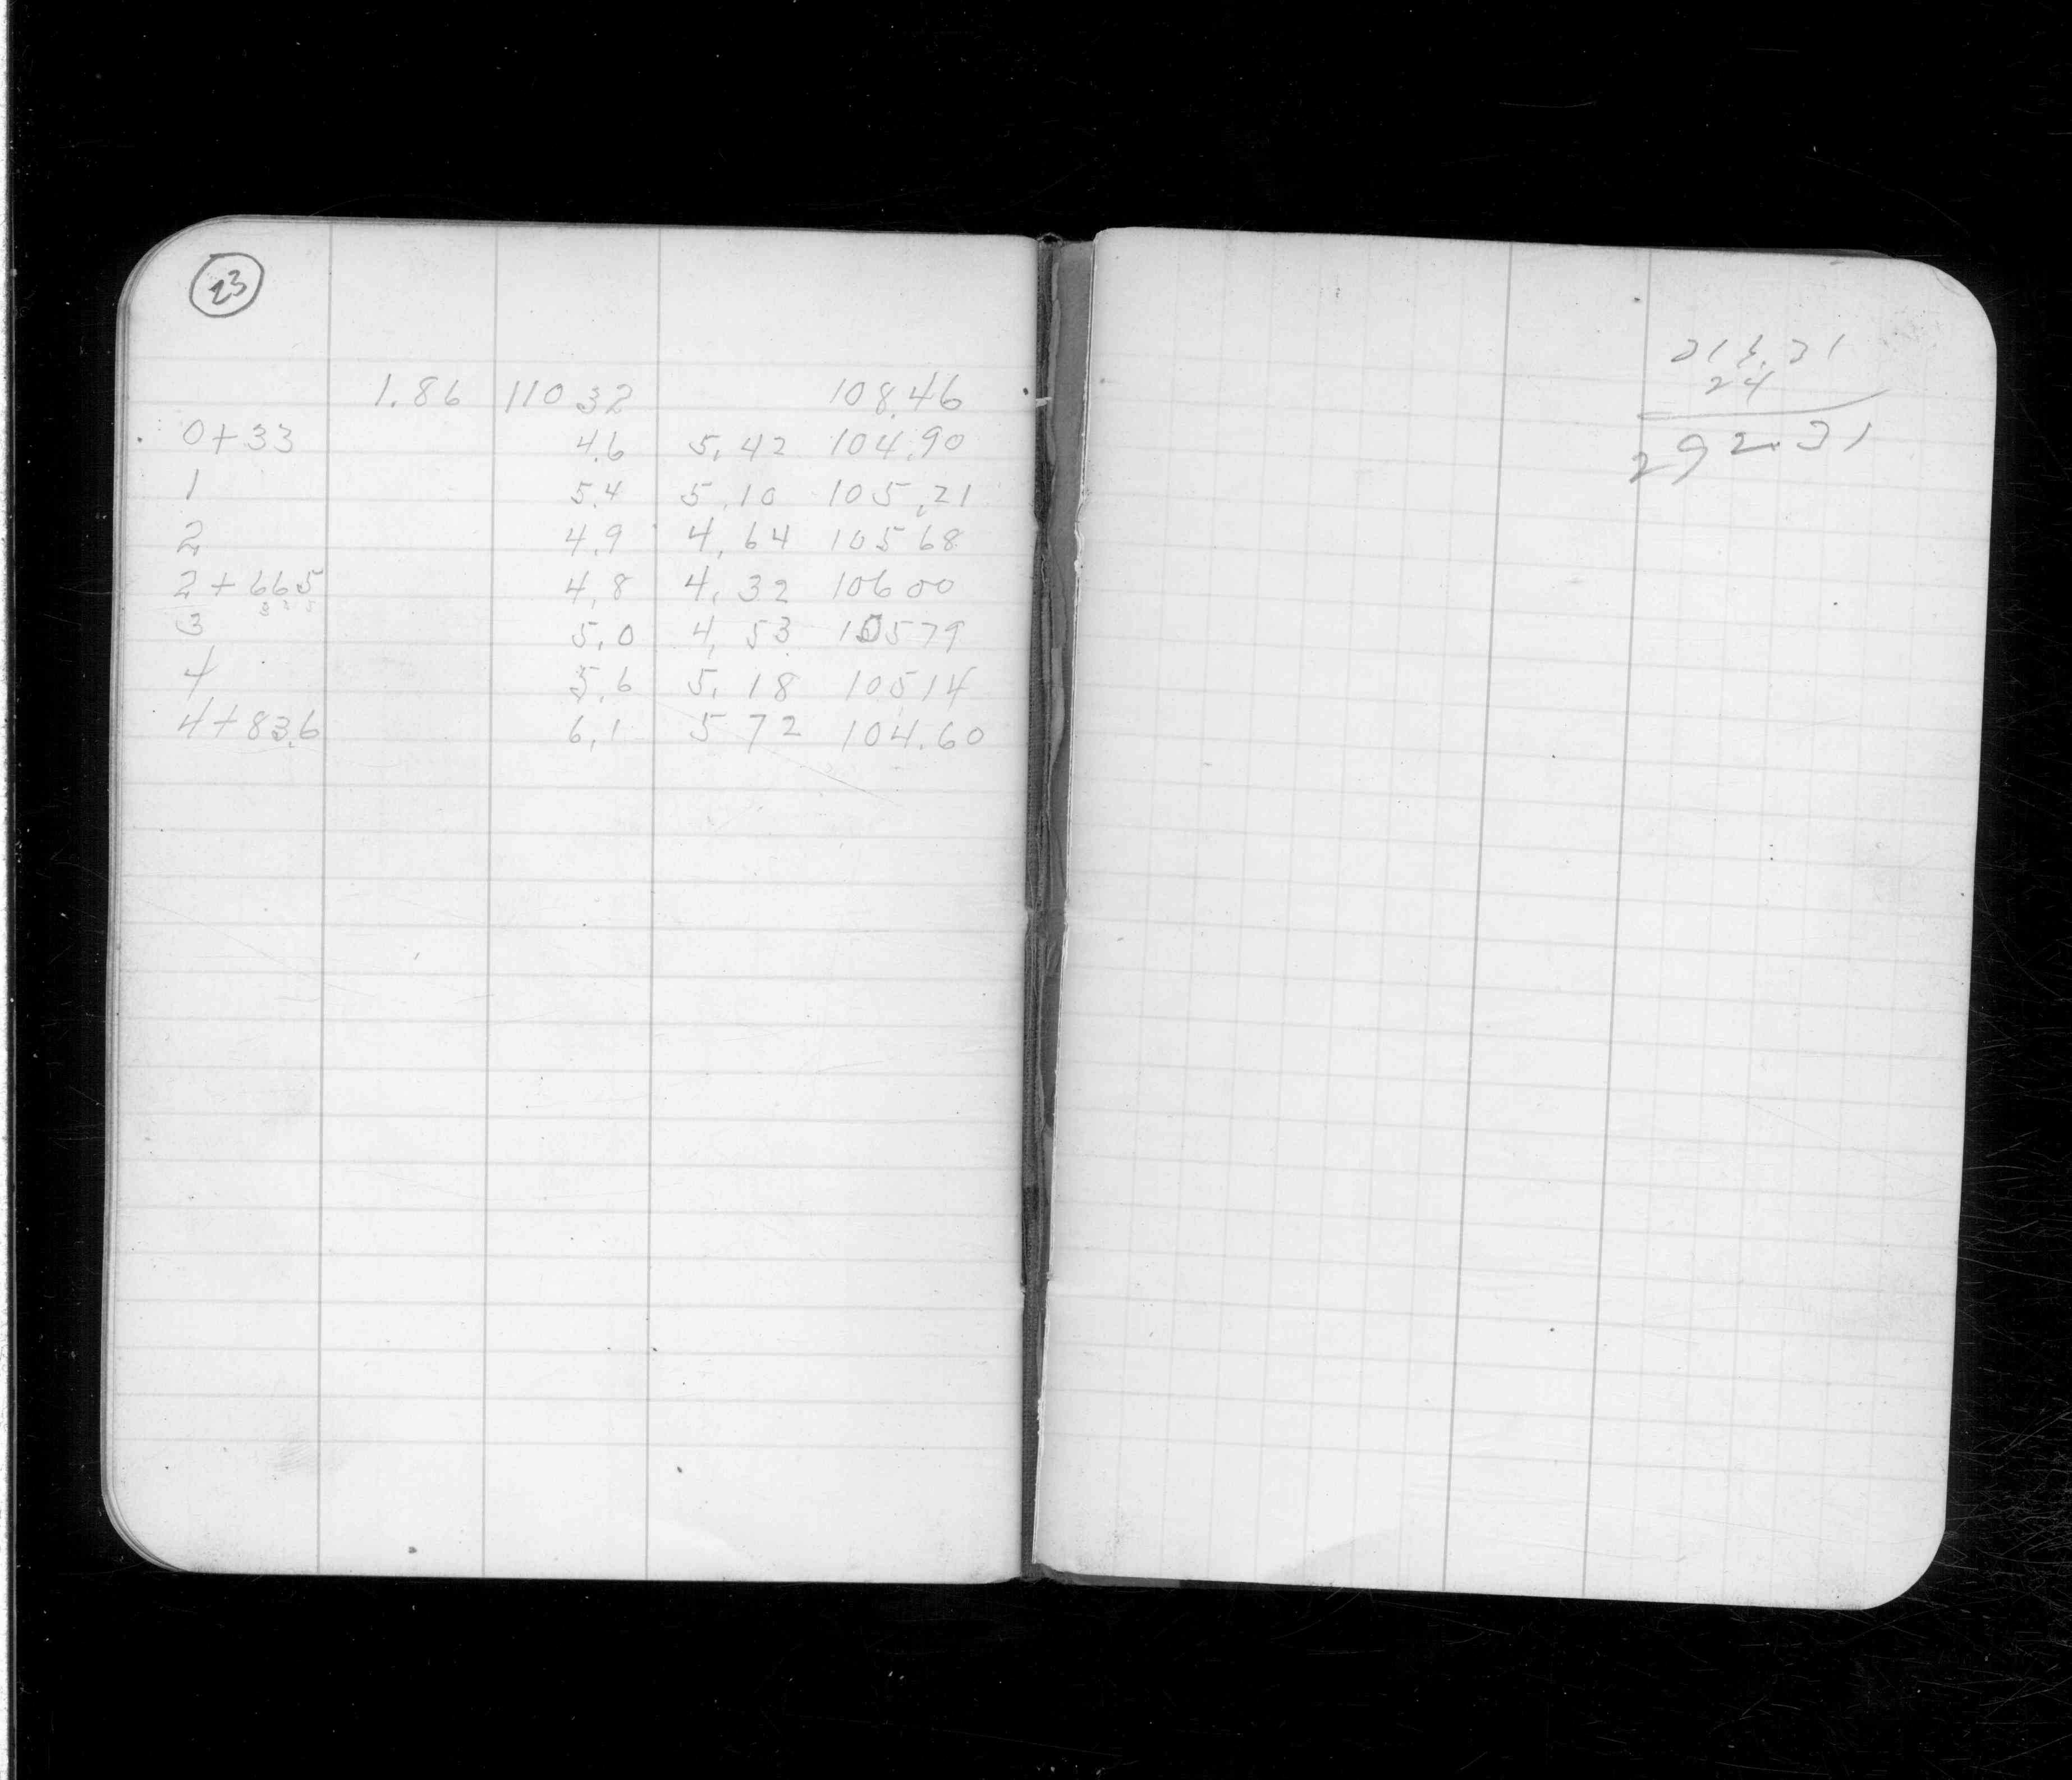 23
1.86 110 32 108.46
0+33 4.6 5.42 104.90
1 5.4 5.10 105.21
2 4.9 4.64 105 68
2+665 4.8 4.32 106 00
3 5.0 4.53 105 79
4 5.6 5.18 105 14
4+83.6 6.1 5 72 104.60
24
292.31